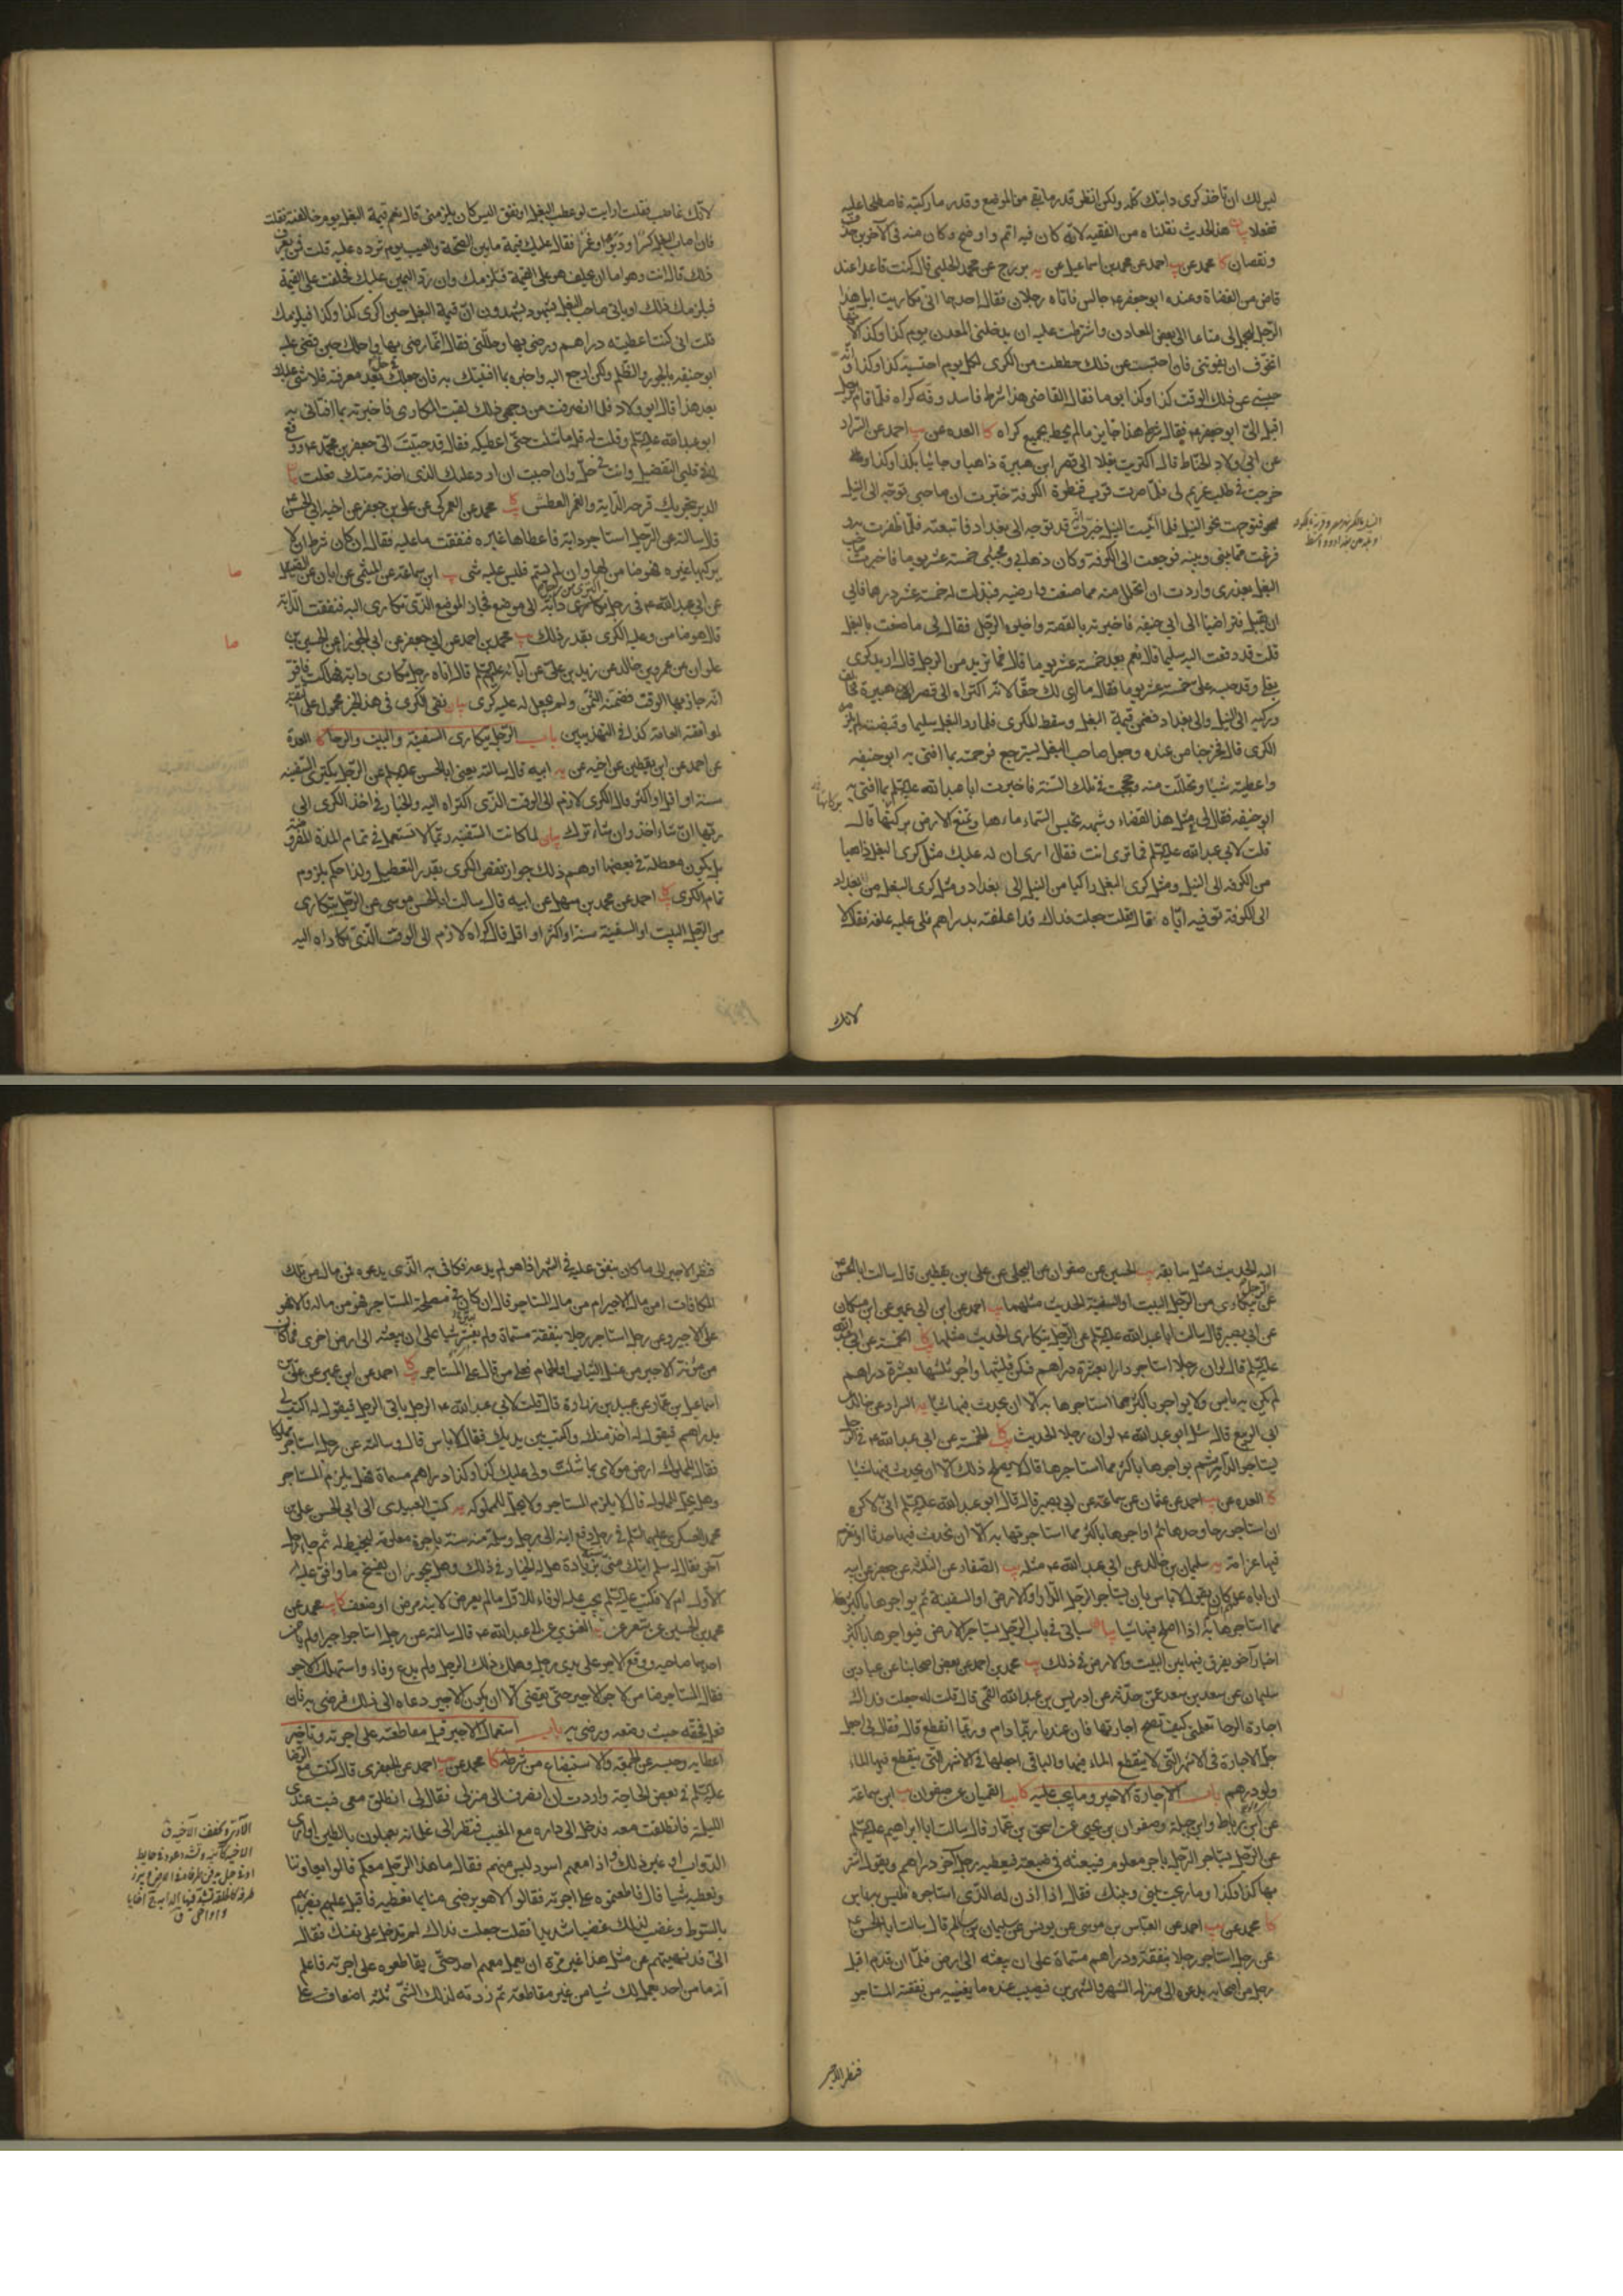 ليس لك ان تاخذ كرى دابتك كله ولكن انظر قدر ما بقى من الموضع وقدر ما ركبته فاصطلحا عليه
ففعلا بيان هذا الحديث نقلناه من الفقيه لانه كان فيه اتم واوضح وكان منه فى الآخرين حذف
ونقصان كا محمد عن يب احمد عن محمد بن اسماعيل عن يه بزرج عن محمد الحلبى قال كنت قاعدا عند
قاض من القضاة وعنده ابو جعفر ع جالس فاتاه رجلان فقال احدهما انى تكاريت ابل هذا
الرجل ليحمل لى متاعا الى بعض المعادن واشترطت عليه ان يدخلنى المعدن يوم كذا وكذا لانها
اتخوف ان يفوتنى فان احتبست عن ذلك حططت من الكرى لكل يوم احتبسته كذا وكذا وانه
حبسنى عن ذلك الوقت كذا وكذا يوما فقال القاضى هذا شرط فاسد وفه كراه فلما قام الرجل
اقبل الى ابو جعفر ع فقال شرط هذا جايز ما لم يحط بجميع كراه كا العده عن يب احمد عن السراد
عن ابى ولاد الحناط قال اكتريت بغلا الى قصر ابن هبيرة ذاهبا وجائيا بكذا وكذا
خرجت فى طلب غريم لى فلما صرت قرب قنطرة الكوفة خبرت ان صاحبى توجه الى النيل
فتوجهت نحو النيل فلما اتيت النيل خبرت انه قد توجه الى بغداد فاتبعته فلما ظفرت به و
فرغت مما بينى وبينه فرجعت الى الكوفة وكان ذهابى ومجيئى خمسة عشر يوما فاخبرت صاحب
البغل بعذرى واردت ان اتحلل منه مما صنعت وارضيه فبذلت له خمسة عشر درهما فابى
ان يقبل فتراضينا الى ابى حنيفه فاخبرته بالقصة واخبره الرجل فقال لى ما صنعت بالبغل
قلت قد دفعت اليه سليما قال نعم بعد خمسة عشر يوما قال فما تريد من الرجل قال اريد كرى
بغلى وقد حبسه على خمسة عشر يوما فقال ما ارى لك حقا لانه اكتراه الى قصر ابن هبيرة فخالف
وركبه الى النيل والى بغداد فضمن قيمة البغل وسقط الكرى فلما رد البغل سليما وقبضته لم يلزمه
الكرى قال فخرجنا من عنده وجعل صاحب البغل يسترجع فرحمته مما افتى به ابو حنيفه
واعطيته شيئا وتحللت منه وحججت فى تلك السنة فاخبرت ابا عبد الله عليه السلم بما افتى به
ابو حنيفه فقال لى مثل هذا القضاء وشبهه تحبس السماء ماءها وتمنع الارض بركتها قال
قلت لابى عبد الله عليه السلم فما ترى انت فقال ارى ان له عليك مثل كرى البغل ذاهبا
من الكوفه الى النيل ومثل كرى البغل راكبا من النيل الى بغداد ومثل كرى البغل من بغداد
الى الكوفة توفيه اياه قال فقلت جعلت فداك قد اعلفته بدراهم فلى عليه علفه فقال لا
لانك
لانك غاصب فقلت ارايت لو عطب البغل او نفق اليس كان يلزمنى قال نعم قيمة البغل يوم خالفته قلت
فان اصاب البغل كسر او دبر او غمز فقال عليك قيمة ما بين الصحة والعيب يوم ترده عليه قلت فمن يعرف
ذلك قال انت وهو اما ان يحلف هو على القيمة فيلزمك وان رد اليمين عليك فحلفت على القيمة
فيلزمك ذلك او ياتى صاحب البغل بشهود يشهدون ان قيمة البغل حين اكرى كذا وكذا فيلزمك
قلت انى كنت اعطيته دراهم ورضى بها وحللنى فقال انما رضى بها واحلك حين قضى عليه
ابو حنيفه بالجور والظلم ولكن ارجع اليه واخبره بما افتيتك به فان جعلك فى حل بعد معرفته فلا شئ عليك
بعد هذا قال ابو ولاد فلما انصرفت من وجهى ذلك لقيت المكارى فاخبرته بما افتانى به
ابو عبد الله عليه السلم وقلت له قل ما شئت حتى اعطيكه فقال قد حببت الى جعفر بن محمد ع ووقع
فى قلبى التفضيل وانت فى حل وان احببت ان ارد عليك الذى اخذته منك فعلت بيان
الدبر بتحريك قرحه الدابة والغمز العطش كا محمد عن العمركى عن على بن جعفر عن اخيه ابى الحسن ع
قال سالته عن الرجل استاجر دابة فاعطاها غيره فنفقت ما عليه فقال ان كان شرط ان لا
يركبها غيره فهو ضامن لها وان لم يسم فليس عليه شئ يب ابن سماعة عن الميثمى عن ابان عن الصيقل
عن ابى عبد الله ع فى رجل اكترى من رجل دابة الى موضع فجاز الموضع الذى تكارى اليه فنفقت الدابة
قال هو ضامن وعليه الكرى بقدر ذلك يب محمد بن احمد عن ابى جعفر عن ابى الجوزا عن الحسين بن
علوان عن عمرو بن خالد عن زيد بن على عن آبائه عليهم السلم قال اتاه رجل تكارى دابة فهلكت فاقر
انه جاز بها الوقت فضمنه الثمن ولم يجعل له عليه كرى بيان نفى الكرى فى هذا الخبر محمول على التقية
لموافقته العامة كذا فى التهذيبين باب الرجل يتكارى السفينة والبيت والرحا كا العدة
عن احمد عن ابن يقطين عن اخيه عن يه ابيه قال سالته يعنى ابا الحسن عليه السلم عن الرجل يكترى السفينه
سنة او اقل او اكثر قال الكرى لازم الى الوقت الذى اكتراه اليه والخيار فى اخذ الكرى الى
ربها ان شاء اخذ وان شاء ترك بيان لما كانت السفينه ربما لا تستعمل فى تمام المدة المفروضة
بل يكون معطلة فى بعضها اوهم ذلك جواز نقص الكرى بقدر التعطيل ولذا حكم بلزوم
تمام الكرى كا احمد عن محمد بن سهل عن ابيه قال سالت ابا الحسن موسى عن الرجل يتكارى
من الرجل البيت او السفينة سنة او اكثر او اقل قال كراه لازم الى الوقت الذى تكاراه اليه
اليه الحديث مثل سابقه يب الحسين عن صفوان عن البجلى عن على بن يقطين قال سالت ابا الحسن ع
عن الرجل يتكارى من الرجل البيت او السفينة الحديث مثلهما يب احمد عن ابن ابى عمير عن ابن مسكان
عن ابى بصير قال سالت ابا عبد الله عليه السلم عن الرجل يتكارى الحديث مثلها كا الخمسة عن ابى عبد الله
عليه السلم قال لو ان رجلا استاجر دارا بعشرة دراهم فسكن ثلثيها واجر ثلثها بعشرة دراهم
لم يكن به باس ولا يواجرها باكثر مما استاجرها به الا ان يحدث فيها شيئا يه السراد عن خالد عن
ابى الربيع قال سئل ابو عبد الله ع لو ان رجلا الحديث كا الخمسة عن ابى عبد الله ع فى الرجل
يستاجر الدار ثم يواجرها باكثر مما استاجرها قال لا يصلح ذلك الا ان يحدث فيها شيئا
كا العده عن يب احمد عن عثمان عن سماعة عن ابى بصير قال قال ابو عبد الله عليه السلم انى لاكره
ان استاجر رحا وحدها ثم اواجرها باكثر مما استاجرتها به الا ان نحدث فيها حدثا او نغرم
فيها غرامة يه سليمان بن خالد عن ابى عبد الله ع مثله يب الصفار عن الثلثه عن جعفر عن ابيه
ان اباه ع كان يقول لا باس بان يستاجر الرجل الدار او الارض او السفينة ثم يواجرها باكثر
مما استاجرها به اذا اصلح فيها شيئا بيان سياتى فى باب الرجل يستاجر الارض فيواجرها باكثر
اخبار آخر يفرق فيها بين البيت والارض فى ذلك يب محمد بن احمد عن بعض اصحابنا عن عباد بن
سليمان عن سعد بن سعد عمن حدثه عن ادريس بن عبد الله القمى قال قلت له جعلت فداك
اجارة الرحا تعلمنى كيف تصح اجارتها فان عندنا ربما دام وربما انقطع قال فقال لى اجعل
جل الاجارة فى الاشهر التى لا ينقطع الماء فيها والباقى اجعلها فى الاشهر التى ينقطع فيها الماء
ولو درهم باب الاجارة الاجير وما يجب عليه كا يب القميان عن صفوان يب ابن سماعة
عن ابن رباط وابن جبلة وصفوان بن يحيى عن اسحق بن عمار قال سالت ابا ابراهيم عليه السلم
عن الرجل يستاجر الرجل باجر معلوم فيبعثه فى ضيعته فيعطيه رجل آخر دراهم ويقول اشتر
بها كذا وكذا وما ربحت بينى وبينك فقال اذا اذن له الذى استاجره فليس به باس
كا محمد عن يب احمد عن العباس بن موسى عن يونس عن سليمان بن سالم قال سالت ابا الحسن ع
عن رجل استاجر رجلا بنفقة ودراهم مسماة على ان يبعثه الى ارض فلما ان قدم اقبل
رجل من اصحابه يدعوه الى منزله الشهر والشهرين فيصيب عنده ما يغنيه من نفقة المستاجر
فنظر الاجير
فنظر الاجير الى ما كان ينفق عليه فى الشهر اذا هو لم يدعه فكافى به الذى يدعوه فمن مال من تلك
المكافات امن مال الاجير ام من مال المستاجر قال ان كان فى مصلحة المستاجر فهو من ماله والا فهو
على الاجير وعن رجل استاجر رجلا بنفقة مسماة ولم يفسر شيئا على ان يبعثه الى ارض اخرى فما كان
من مؤنة الاجير من غسل الثياب او الحمام فعلى من قال على المستاجر كا احمد عن ابن ابى عمير عن على بن
اسماعيل بن عمار عن عبيد بن زرارة قال قلت لابى عبد الله ع الرجل ياتى الرجل فيقول له اكتب لى
بدراهم فيقول له آخذ منك واكتب بين يديك فقال لا باس قال وسالته عن رجل استاجر مملوكا
فقال المملوك ارض مولاى بما شئت ولى عليك كذا وكذا دراهم مسماة فهل يلزم المستاجر
وهل يحل للمملوك قال لا يلزم المستاجر ولا يحل للمملوك يه كتب العبيدى الى ابى الحسن على بن
محمد العسكرى عليهما السلم فى رجل دفع ابنه الى رجل وسلمه منه سنة باجرة معلومة ليخيط له ثم جاء رجل
آخر فقال له سلم ابنك منى سنة بزيادة هل له الخيار فى ذلك وهل يجوز ان يفسخ ما وافق عليه
الاول ام لا فكتب عليه السلم يجب عليه الوفاء للاول ما لم يعرض لابنه مرض او ضعف كا يب محمد عن
محمد بن الحسين عن شعر عن الغنوى عن ابى عبد الله ع قال سالته عن رجل استاجر اجيرا فلم يامن
احدهما صاحبه فوضع الاجر على يدى رجل فهلك ذلك الرجل ولم يدع وفاء واستهلك الاجر
فقال المستاجر ضامن لاجر الاجير حتى يقضى الا ان يكون الاجير دعاه الى ذلك فرضى به فان
فعل فحقه حيث وضعه ورضى به باب استعمال الاجير قبل مقاطعته على اجرته وتاخير
اعطايه وحبسه عن الجمعة والاستيفاء من شرطه كا محمد عن يب احمد عن الجعفرى قال كنت مع الرضا
عليه السلم فى بعض الحاجة واردت ان انصرف الى منزلى فقال لى انطلق معى فبت عندى
الليلة فانطلقت معه فدخل الى داره مع المغيب فنظر الى غلمانه يعملون بالطين اوارى
الدواب او غير ذلك واذا معهم اسود ليس منهم فقال ما هذا الرجل معكم قالوا يعاوننا
ونعطيه شيئا قال قاطعتموه على اجرته فقالوا لا هو يرضى منا بما نعطيه فاقبل عليهم يضربهم
بالسوط وغضب لذلك غضبا شديدا فقلت جعلت فداك لم تدخل على نفسك فقال
انى قد نهيتهم عن مثل هذا غير مرة ان يعمل معهم احد حتى يقاطعوه على اجرته فاعلم
انه ما من احد يعمل لك شيئا من غير مقاطعة ثم زدته لذلك الشئ ثلثة اضعاف على